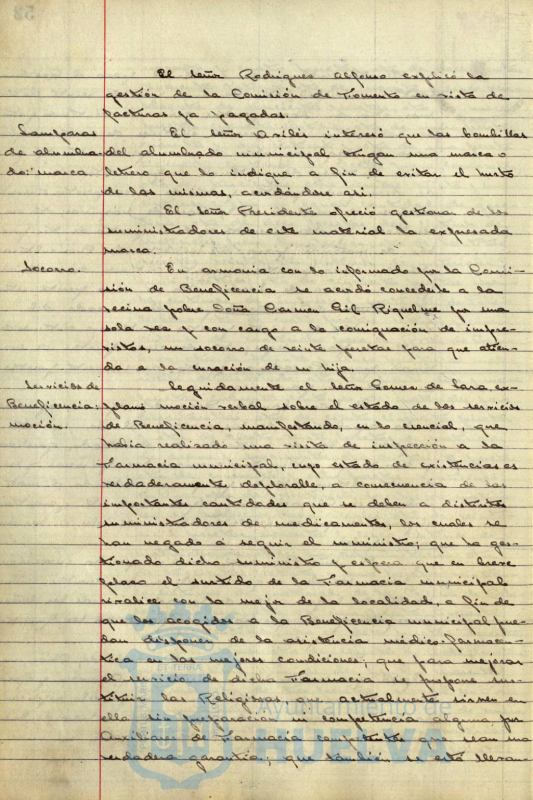 El señor Rodriguez Alfonso explicó la
gestión de la Comisión de Fomento en vista de
facturas ya pagadas.
Lamparas
de alumbra-
do: marca
El señor Avilés interesó que las bombillas
del alumbrado municipal tengan una marca o
letrero que lo indique a fin de evitar el hurto
de las mismas, acordándose asi.
El señor Presidente ofreció gestionar de los
suministradores de este material la expresada
marca.
Socorro.
En armonia con lo informado por la Comi-
sión de Beneficencia se acordó concederle a la
vecina pobre Doña Carmen Gil Riquelme por una
sola vez y con cargo a la consignación de impre-
vistos, un socorro de veinte pesetas para que atien-
da a la curación de su hija.
Servicios de
Beneficencia;
moción.
Seguidamente el señor Gomez de Lara, ex-
planó moción verbal sobre el estado de los servicios
de Beneficencia, manifestando, en lo esencial, que
habia realizado una visita de inspección a la
Farmacia municipal, cuyo estado de existencias es
verdaderamente deplorable, a consecuencia de las
importantes cantidades que se deben a distintos
suministradores de medicamentos, los cuales se
han negado a seguir el suministro; que ha ges-
tionado dicho suministro y espera que en breve
plazo el surtido de la Farmacia municipal
rivalice con la mejor de la localidad, a fin de
que los acogidos a la Beneficencia municipal pue-
dan disponer de la asistencia médico-farmaceu-
tica en las mejores condiciones; que para mejorar
el servicio de dicha Farmacia se propone sus-
tituir las Religiosas que actualmente sirven en
ella sin preparación ni competencia alguna, por
Auxiliares de Farmacia competentes que sean una
verdadera garantia; que también se está llevan-
Ayuntamiento de
HUELVA